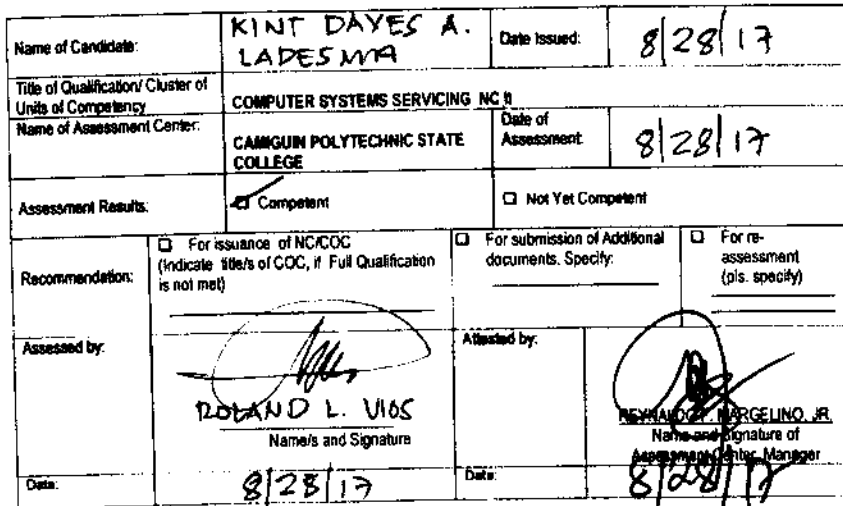 Name of Candidate:
KINT DAYES A.
LADESMA
Date Issued:
8/28/17
Title of Qualification/ Cluster of
Units of Competency
COMPUTER SYSTEMS SERVICING NC II
Name of Assessment Center:
CAMIGUIN POLYTECHNIC STATE
COLLEGE
Date of
Assessment:
8/28/17
Assessment Results:
Competent
Not Yet Competent
Recommendation:
For issuance of NC/COC
(Indicate title/s of COC, if Full Qualification
is not met)
For submission of Additional
documents. Specify:
For re-
assessment
(pls. specify)
Assessed by:
ROLAND L. VIOS
Name/s and Signature
Attested by:
MARGELINO, JR.
Name and Signature of
Assessment Center Manager
Date:
8/28/17
Date:
8/28/17